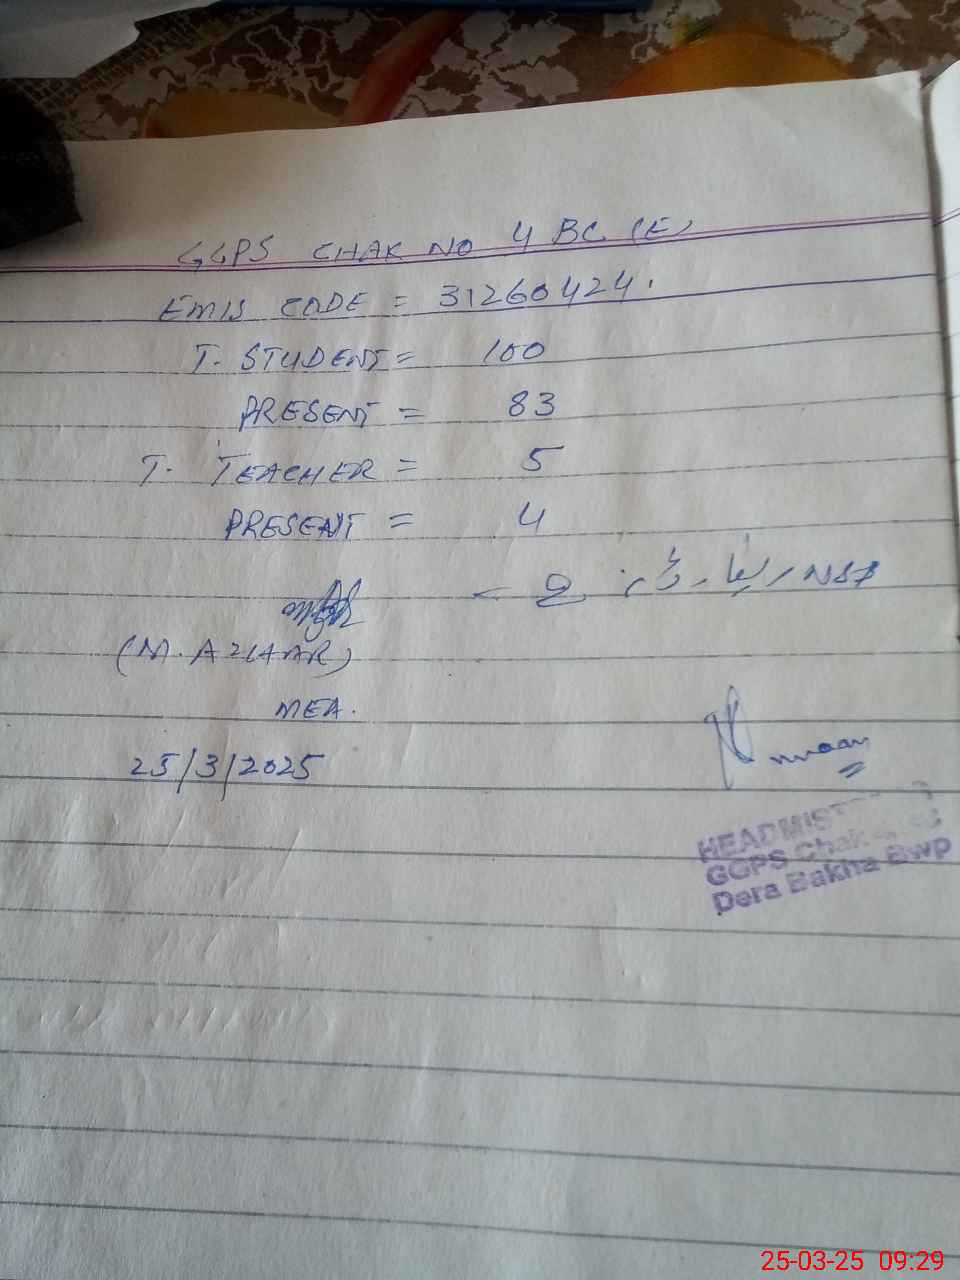 GGPS CHAK NO 4 BC (E)
EMIS CODE = 31260424.
T. STUDENT = 100
PRESENT = 83
T. TEACHER = 5
PRESENT = 4
NSB
(M. AZHAR)
MEA.
25/3/2025
GGPS Chak
Dera Bakha Bwp
25-03-25 09:29